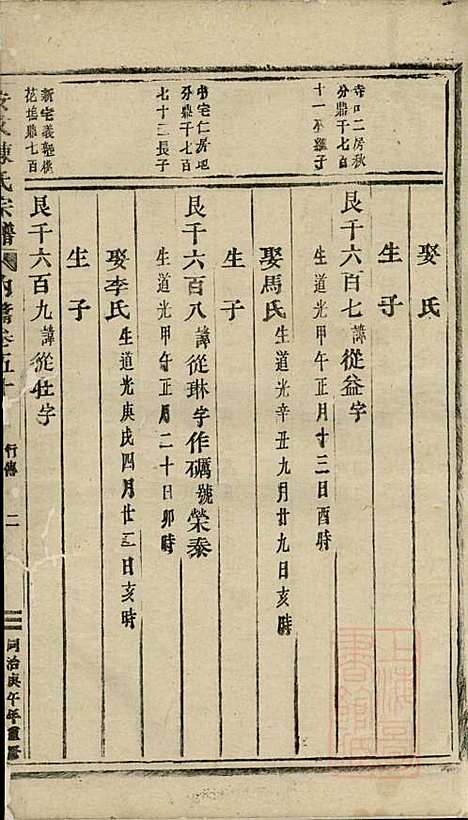 娶氏
生子
艮千六百七諱從益字
生道光甲午正月十三日酉時
娶馬氏生道光辛丑九月廿九日亥時
生子
艮千六百八諱從琳字作礪號榮泰
生道光甲午正月二十日卯時
娶李氏生道光庚戌四月廿三日亥時
生子
艮千六百九諱從仕字
寺口二房秋
分鼎千七百
十一承繼子
宅仁房地
分鼎千七百
七十三長子
新宅義
花塢鼎七百
陳氏宗譜
行傳
二
同治庚午年重修